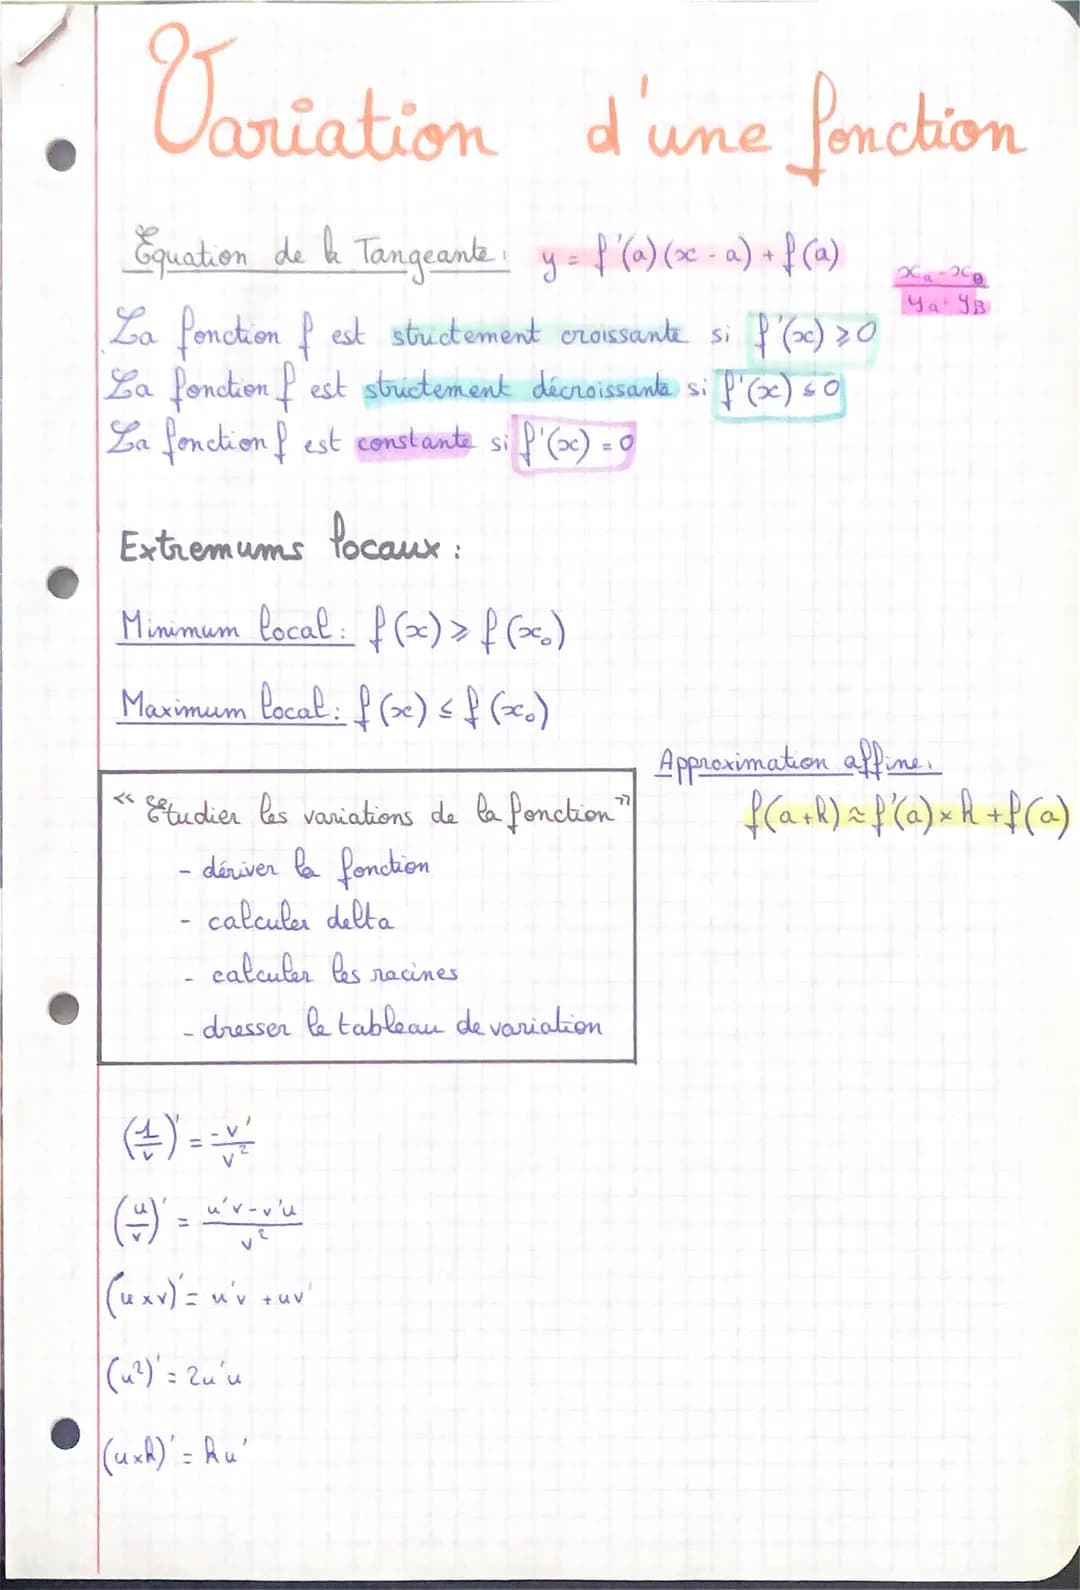 Variation d'une fonction
Equation de la Tangeante : y = f'(a)(x - a) + f(a)
xa - xB
ya - yB
La fonction f est strictement croissante si f'(x) ⩾ 0
La fonction f est strictement décroissante si f'(x) ⩽ 0
La fonction f est constante si f'(x) = 0
Extremums locaux :
Minimum local : f(x) ⩾ f(x₀)
Maximum local : f(x) ⩽ f(x₀)
Approximation affine :
f(a+h) ≈ f'(a) × h + f(a)
« Etudier les variations de la fonction »
- dériver la fonction
- calculer delta
- calculer les racines
- dresser le tableau de variation
(1/v)' = -v'/v²
(u/v)' = u'v - v'u/v²
(u×v)' = u'v + uv'
(u²)' = 2u'u
(u×k)' = ku'